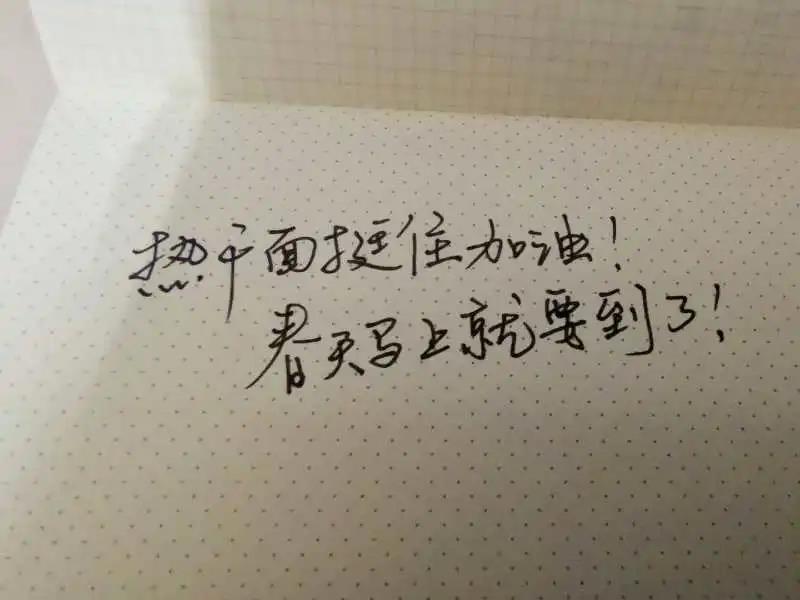 热干面挺住加油！
春天马上就要到了！